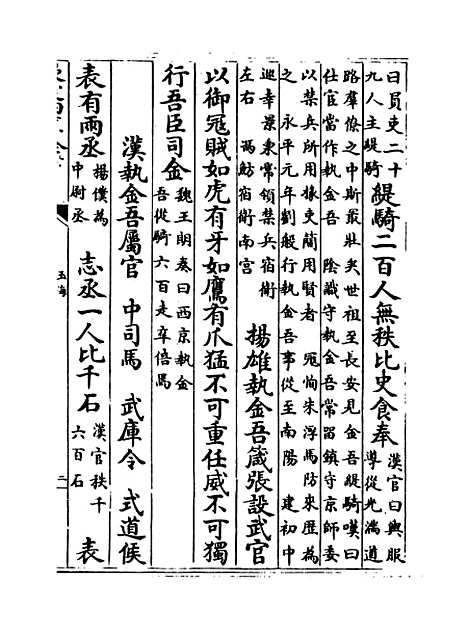 曰員吏二十
九人主緹騎
緹騎二百人無秩比吏食奉
漢官曰輿服
導從光滿道
路羣僚之中斯最壯矣世祖至長安見金吾緹騎嘆曰
仕宦當作執金吾 陰識守執金吾常留鎮守京師委
以禁兵所用掾史簡用賢者 寇恂朱浮馬防來歷為
之 永平元年劉般行執金吾事從至南陽 建初中
巡幸景東常領禁兵宿衛
左右 馮魴宿衛南宮
揚雄執金吾箴張設武官
以御冦賊如虎有牙如鷹有爪猛不可重任威不可獨
行吾臣司金
魏王朗奏曰西京執金
吾從騎六百走卒倍焉
漢執金吾屬官 中司馬 武庫令 式道候
表有兩丞
楊僕為
中尉丞
志丞一人比千石
漢官秩千
六百石
表
玉海